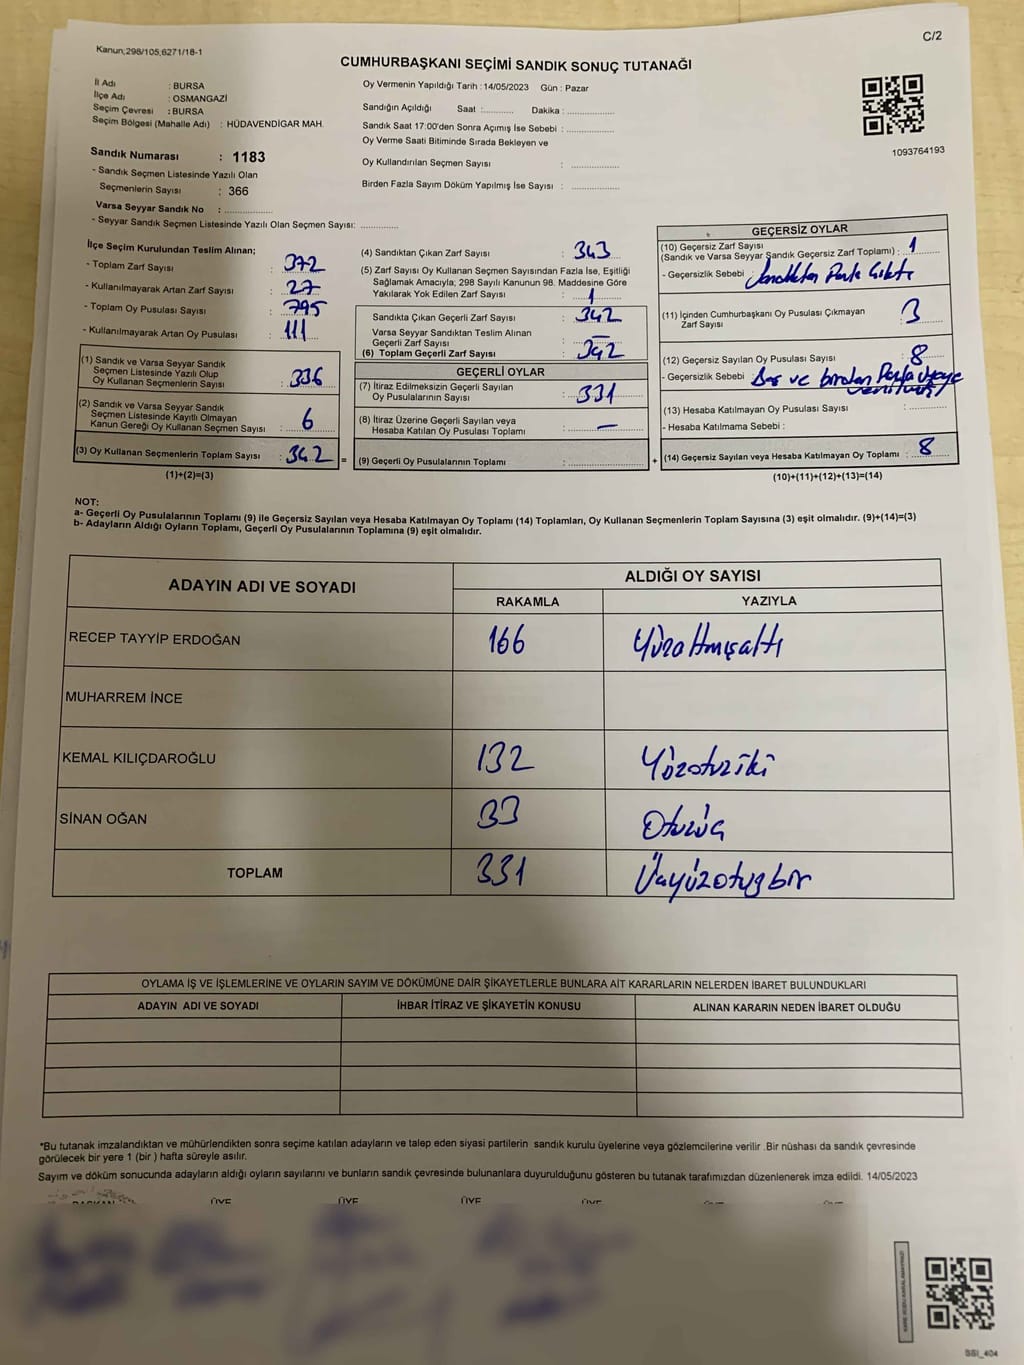 Kanun;298/105,6271/18-1
C/2
CUMHURBAŞKANI SEÇİMİ SANDIK SONUÇ TUTANAĞI
İl Adı : BURSA
İlçe Adı : OSMANGAZİ
Seçim Çevresi : BURSA
Seçim Bölgesi (Mahalle Adı) : HÜDAVENDİGAR MAH.
Oy Vermenin Yapıldığı Tarih : 14/05/2023 Gün : Pazar
Sandığın Açıldığı Saat :........... Dakika : ..............
Sandık Saat 17:00'den Sonra Açımış İse Sebebi : ..............
Oy Verme Saati Bitiminde Sırada Bekleyen ve
Oy Kullandırılan Seçmen Sayısı : ..............
Birden Fazla Sayım Döküm Yapılmış İse Sayısı : ..............
1093764193
Sandık Numarası : 1183
- Sandık Seçmen Listesinde Yazılı Olan
Seçmenlerin Sayısı : 366
Varsa Seyyar Sandık No : ..............
- Seyyar Sandık Seçmen Listesinde Yazılı Olan Seçmen Sayısı: ..............
İlçe Seçim Kurulundan Teslim Alınan;
- Toplam Zarf Sayısı : 372
- Kullanılmayarak Artan Zarf Sayısı : 27
- Toplam Oy Pusulası Sayısı : 795
- Kullanılmayarak Artan Oy Pusulası : 111
(1) Sandık ve Varsa Seyyar Sandık
Seçmen Listesinde Yazılı Olup
Oy Kullanan Seçmenlerin Sayısı : 336
(2) Sandık ve Varsa Seyyar Sandık
Seçmen Listesinde Kayıtlı Olmayan
Kanun Gereği Oy Kullanan Seçmen Sayısı : 6
(3) Oy Kullanan Seçmenlerin Toplam Sayısı : 342 =
(1)+(2)=(3)
(4) Sandıktan Çıkan Zarf Sayısı : 343
(5) Zarf Sayısı Oy Kullanan Seçmen Sayısından Fazla İse, Eşitliği
Sağlamak Amacıyla; 298 Sayılı Kanunun 98. Maddesine Göre
Yakılarak Yok Edilen Zarf Sayısı : 1
Sandıkta Çıkan Geçerli Zarf Sayısı : 342
Varsa Seyyar Sandıktan Teslim Alınan
Geçerli Zarf Sayısı : —
(6) Toplam Geçerli Zarf Sayısı : 342
GEÇERLİ OYLAR
(7) İtiraz Edilmeksizin Geçerli Sayılan
Oy Pusulalarının Sayısı : 331
(8) İtiraz Üzerine Geçerli Sayılan veya
Hesaba Katılan Oy Pusulası Toplamı : —
(9) Geçerli Oy Pusulalarının Toplamı : .............. +
GEÇERSİZ OYLAR
(10) Geçersiz Zarf Sayısı
(Sandık ve Varsa Seyyar Sandık Geçersiz Zarf Toplamı) : 1
- Geçersizlik Sebebi : Sandıktan Fazla Çıktı
(11) İçinden Cumhurbaşkanı Oy Pusulası Çıkmayan
Zarf Sayısı : 3
(12) Geçersiz Sayılan Oy Pusulası Sayısı : 8
- Geçersizlik Sebebi : Boş ve birden fazla
(13) Hesaba Katılmayan Oy Pusulası Sayısı : ..............
- Hesaba Katılmama Sebebi :
(14) Geçersiz Sayılan veya Hesaba Katılmayan Oy Toplamı : 8
(10)+(11)+(12)+(13)=(14)
NOT:
a- Geçerli Oy Pusulalarının Toplamı (9) ile Geçersiz Sayılan veya Hesaba Katılmayan Oy Toplamı (14) Toplamları, Oy Kullanan Seçmenlerin Toplam Sayısına (3) eşit olmalıdır. (9)+(14)=(3)
b- Adayların Aldığı Oyların Toplamı, Geçerli Oy Pusulalarının Toplamına (9) eşit olmalıdır.
ADAYIN ADI VE SOYADI
ALDIĞI OY SAYISI
RAKAMLA YAZIYLA
RECEP TAYYİP ERDOĞAN 166 Yüzaltmışaltı
MUHARREM İNCE
KEMAL KILIÇDAROĞLU 132 Yüzotuziki
SİNAN OĞAN 33 Otuzüç
TOPLAM 331 Üçyüzotuzbir
OYLAMA İŞ VE İŞLEMLERİNE VE OYLARIN SAYIM VE DÖKÜMÜNE DAİR ŞİKAYETLERLE BUNLARA AİT KARARLARIN NELERDEN İBARET BULUNDUKLARI
ADAYIN ADI VE SOYADI İHBAR İTİRAZ VE ŞİKAYETİN KONUSU ALINAN KARARIN NEDEN İBARET OLDUĞU
*Bu tutanak imzalandıktan ve mühürlendikten sonra seçime katılan adayların ve talep eden siyasi partilerin sandık kurulu üyelerine veya gözlemcilerine verilir .Bir nüshası da sandık çevresinde
görülecek bir yere 1 (bir ) hafta süreyle asılır.
Sayım ve döküm sonucunda adayların aldığı oyların sayılarını ve bunların sandık çevresinde bulunanlara duyurulduğunu gösteren bu tutanak tarafımızdan düzenlenerek imza edildi. 14/05/2023
BAŞKAN ÜYE ÜYE ÜYE ÜYE ÜYE ÜYE
SSI_404